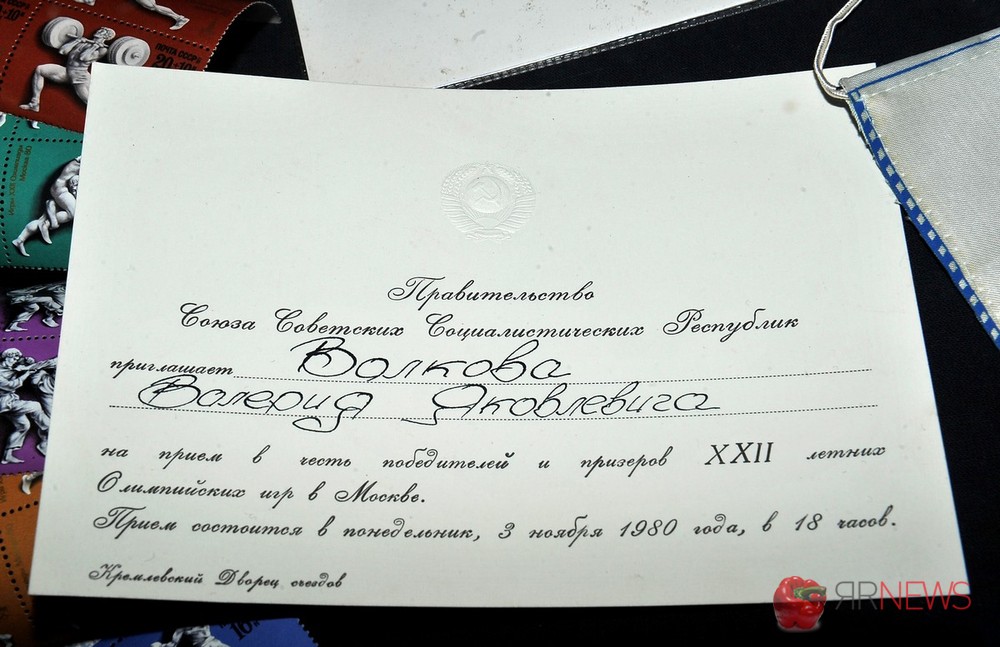 ПОЧТА СССР
20+10к
Игры XXII Олимпиады
Москва 80
Правительство
Союза Советских Социалистических Республик
приглашает Волкова
Валерия Яковлевича
на прием в честь победителей и призеров XXII летних
Олимпийских игр в Москве.
Прием состоится в понедельник, 3 ноября 1980 года, в 18 часов.
Кремлевский Дворец съездов
ЯRNEWS